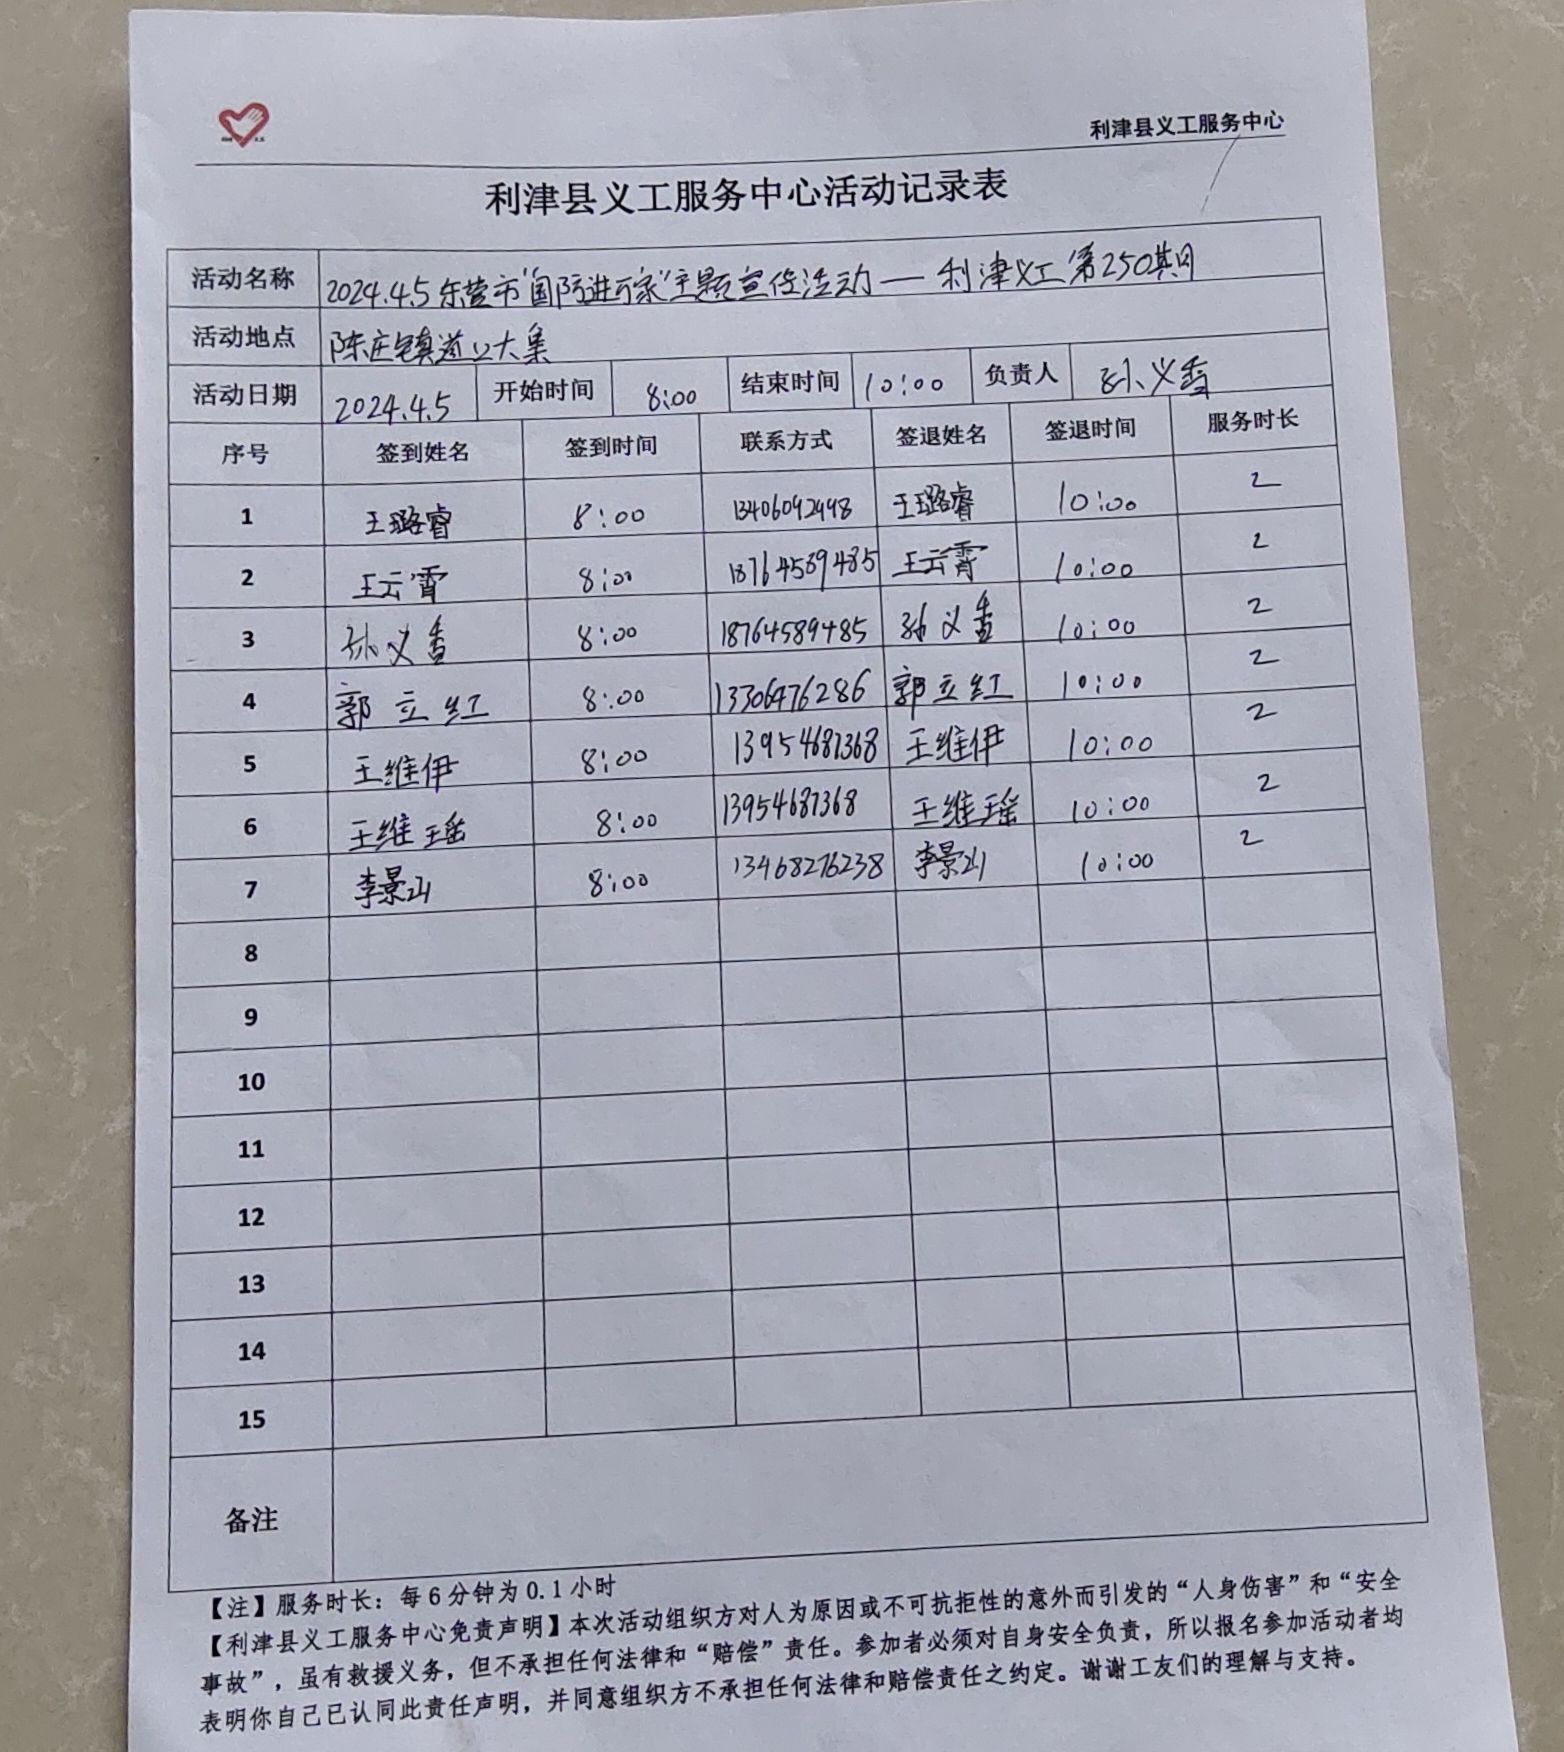 利津县义工服务中心
利津县义工服务中心活动记录表
活动名称 2024.4.5东营市"国防进万家"主题宣传活动——利津义工第250期
活动地点 陈庄镇道口大集
活动日期 2024.4.5 开始时间 8:00 结束时间 10:00 负责人 孙义香
序号 签到姓名 签到时间 联系方式 签退姓名 签退时间 服务时长
1 王璐睿 8:00 13406092998 王璐睿 10:00 2
2 王云霄 8:00 18764589485 王云霄 10:00 2
3 孙义香 8:00 18764589485 孙义香 10:00 2
4 郭立红 8:00 13306476286 郭立红 10:00 2
5 王维伊 8:00 13954687368 王维伊 10:00 2
6 王维瑶 8:00 13954687368 王维瑶 10:00 2
7 李景山 8:00 13468276238 李景山 10:00 2
8
9
10
11
12
13
14
15
备注
【注】服务时长：每6分钟为0.1小时
【利津县义工服务中心免责声明】本次活动组织方对人为原因或不可抗拒性的意外而引发的“人身伤害”和“安全
事故”，虽有救援义务，但不承担任何法律和“赔偿”责任。参加者必须对自身安全负责，所以报名参加活动者均
表明你自己已认同此责任声明，并同意组织方不承担任何法律和赔偿责任之约定。谢谢工友们的理解与支持。